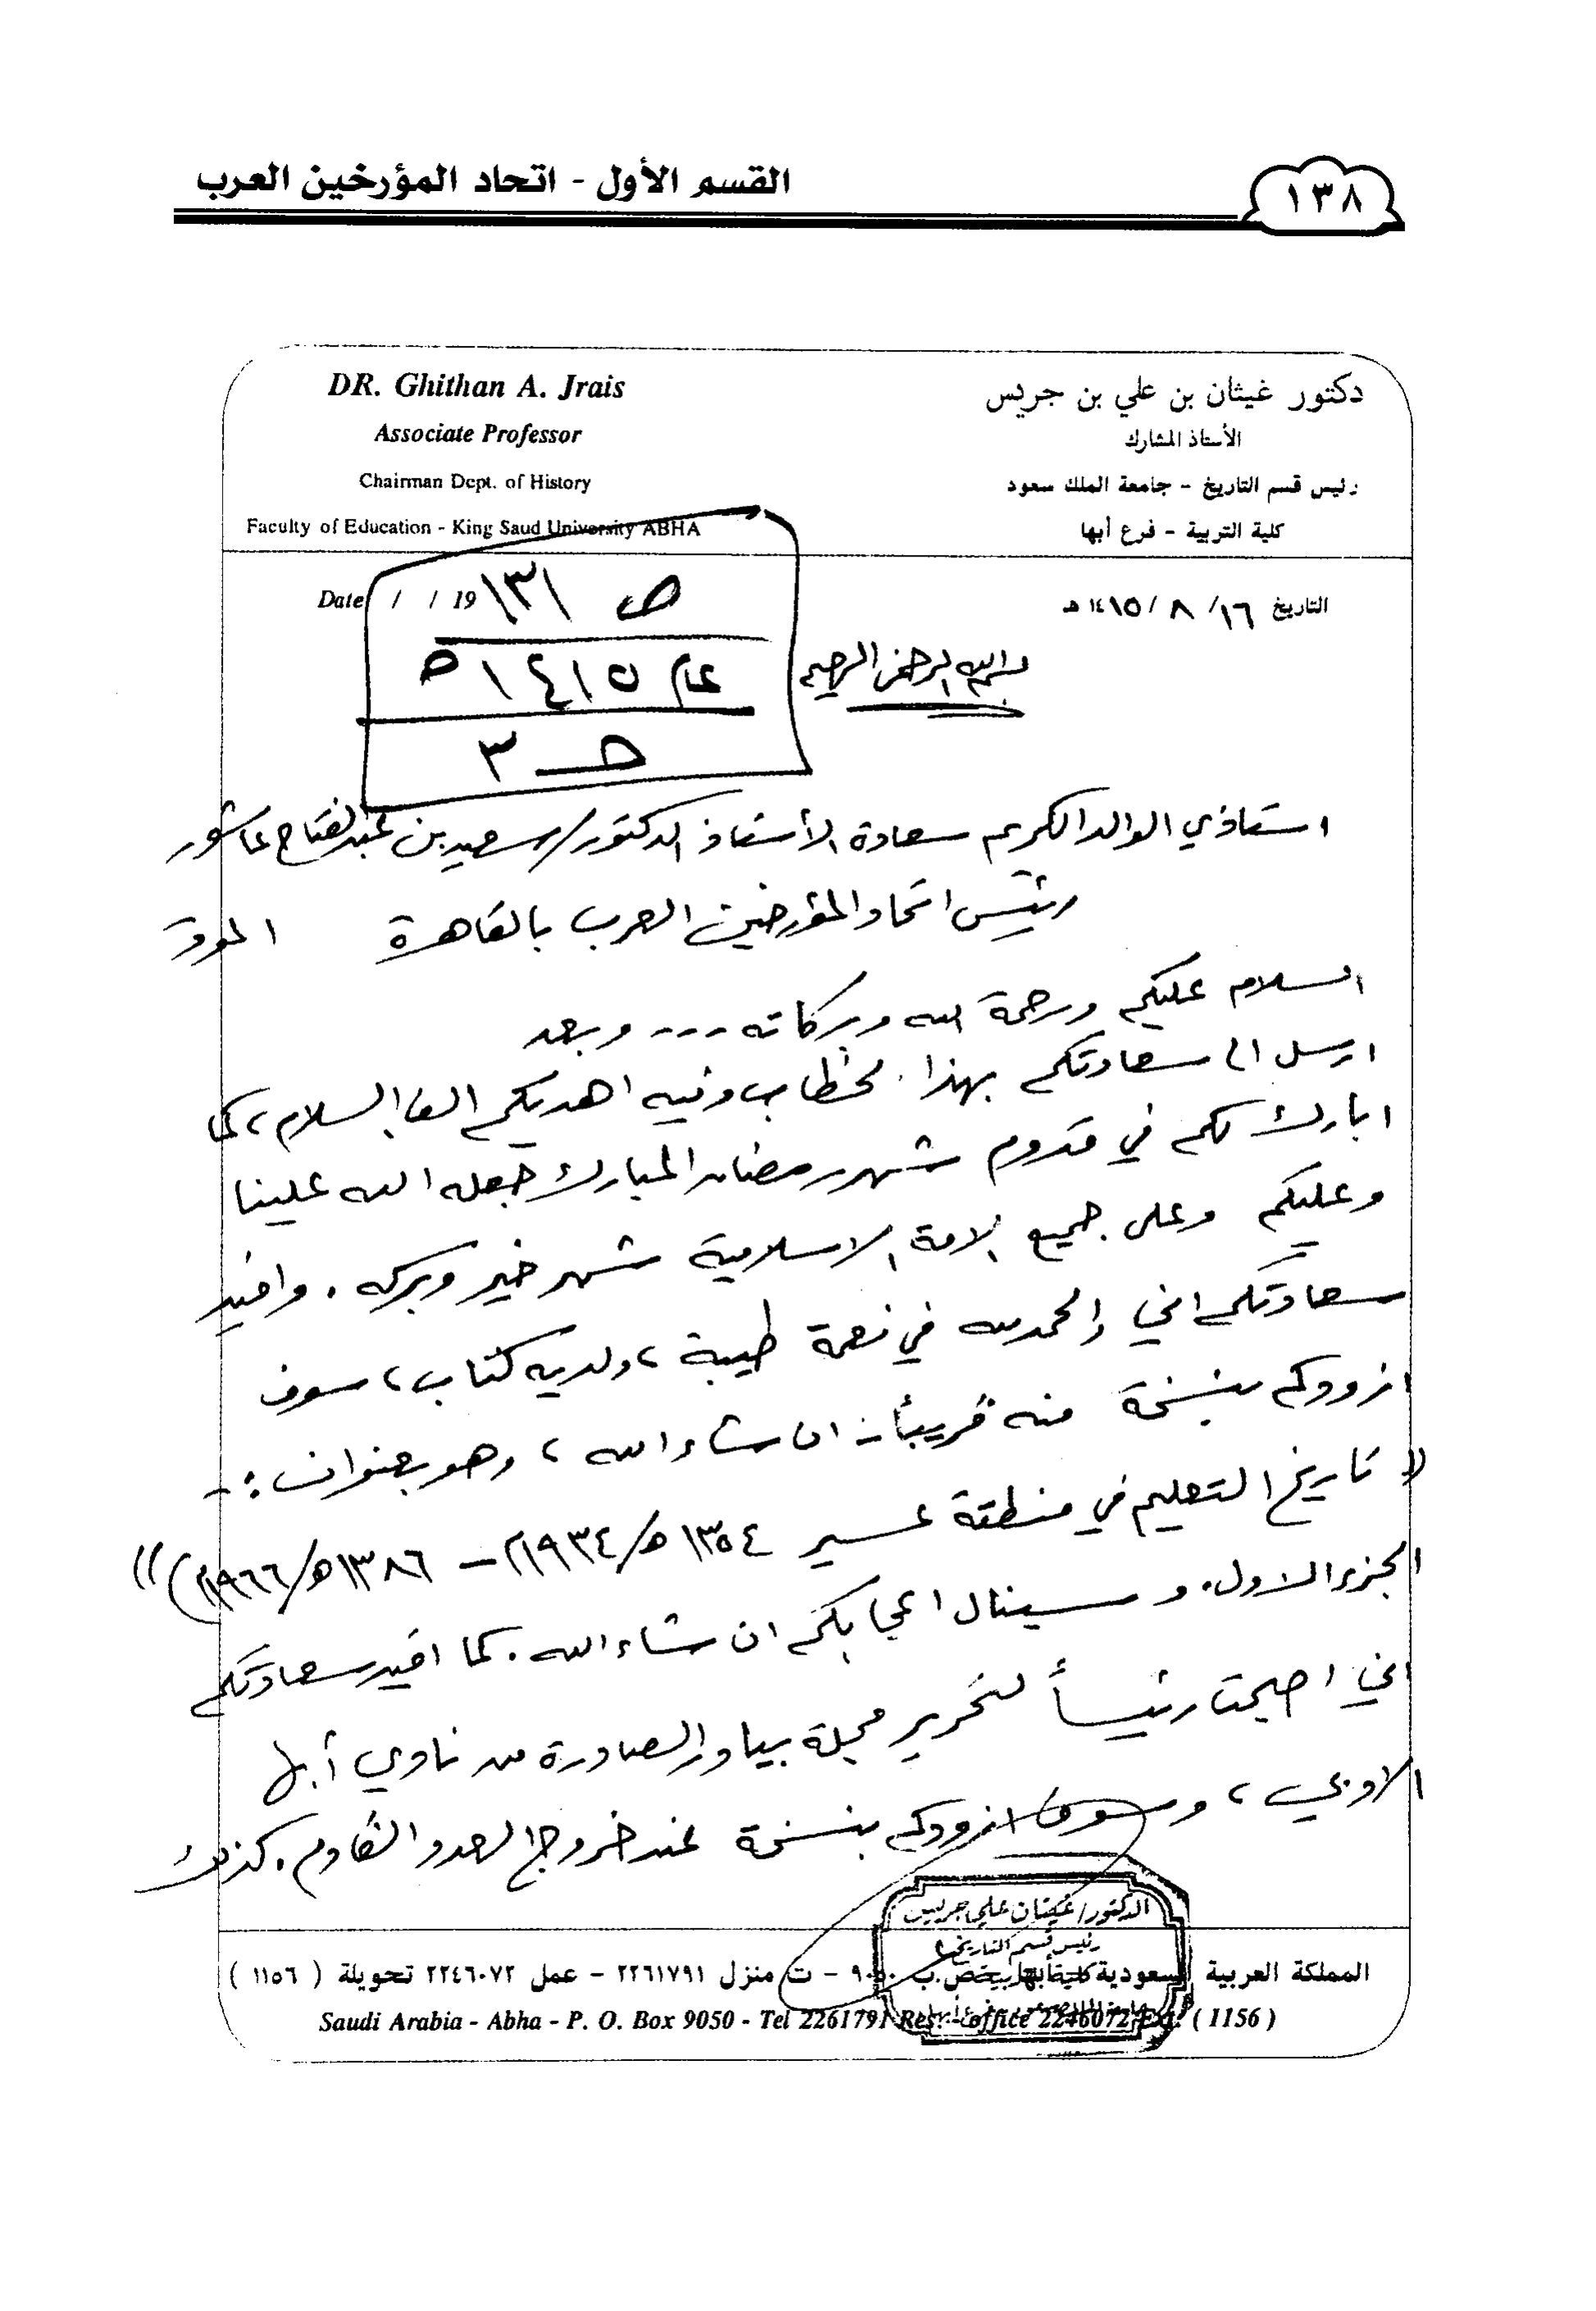 القسم الأول - اتحاد المؤرخين العرب
١٣٨
DR. Ghithan A. Jrais
Associate Professor
Chairman Dept. of History
Faculty of Education - King Saud University ABHA
دكتور غيثان بن علي بن جريس
الأستاذ المشارك
رئيس قسم التاريخ - جامعة الملك سعود
كلية التربية - فرع أبها
Date / / 19
التاريخ ١٦/ ٨ /١٤١٥ هـ
ص ١٣١
عام ١٤١٥ هـ
حـ ٣
بسم الله الرحمن الرحيم
استاذي الوالد الكريم سعادة الأستاذ الدكتور/ سعيد بن عبدالفتاح عاشور
رئيس اتحاد المؤرخين العرب بالقاهرة الموقر
السلام عليكم ورحمة الله وبركاته --- وبعد
ارسل الى سعادتكم بهذا الخطاب وفيه اهديكم الف السلام، كما
ابارك لكم في قدوم شهر رمضان المبارك جعله الله علينا
وعليكم وعلى جميع الامة الاسلامية شهر خير وبركه. وافيد
سعادتكم اني والحمد لله في نعمة طيبة، ولديه كتاب، سوف
ازودكم بنسخة منه قريباً - ان شاء الله، وهو بعنوان :-
(( تاريخ التعليم في منطقة عسير ١٣٥٤هـ/١٩٣٤م - ١٣٨٦هـ/١٩٦٦م) ))
الجزء الاول. وسينال اعجابكم ان شاء الله. كما افيد سعادتكم
اني اصبحت رئيساً لتحرير مجلة بيادر الصادرة من نادي أبها
الادبي، وسوف ازودكم بنسخة عند خروج العدد القادم. كذلك
الدكتور/ غيثان علي جريس
رئيس قسم التاريخ
المملكة العربية السعودية - أبها - ص.ب ٩٠٥٠ - ت منزل ٢٢٦١٧٩١ - عمل ٢٢٤٦٠٧٢ تحويلة ( ١١٥٦ )
Saudi Arabia - Abha - P. O. Box 9050 - Tel 2261791 Res. - office 2246072 Ext. ( 1156 )